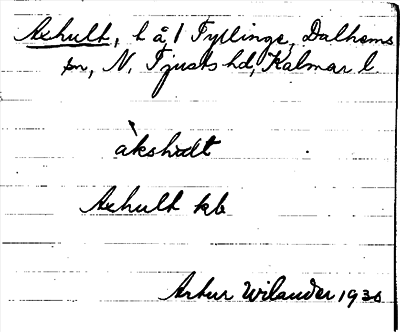 Axhult, t å, 1 Fyllinge, Dalhems
sn, N. Tjusts hd, Kalmar l
àkshult
Axhult kb
Artur Wilander 1930